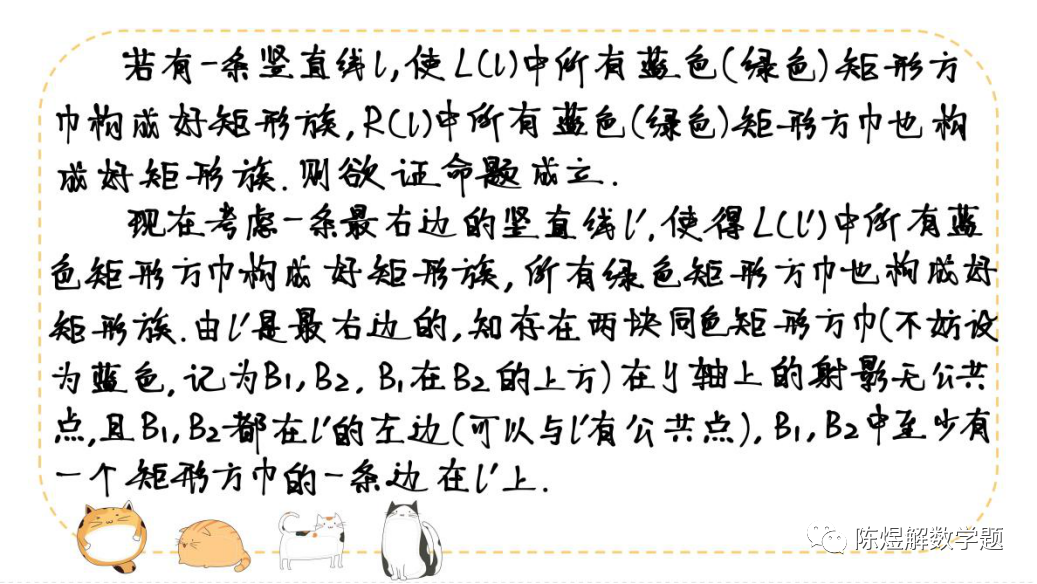 若有一条竖直线l,使L(l)中所有蓝色(绿色)矩形方
巾构成好矩形族,R(l)中所有蓝色(绿色)矩形方巾也构
成好矩形族.则欲证命题成立.
现在考虑一条最右边的竖直线l′,使得L(l′)中所有蓝
色矩形方巾构成好矩形族,所有绿色矩形方巾也构成好
矩形族.由l′是最右边的,知存在两块同色矩形方巾(不妨设
为蓝色,记为B₁,B₂,B₁在B₂的上方)在y轴上的射影无公共
点,且B₁,B₂都在l′的左边(可以与l′有公共点),B₁,B₂中至少有
一个矩形方巾的一条边在l′上.
陈煜解数学题